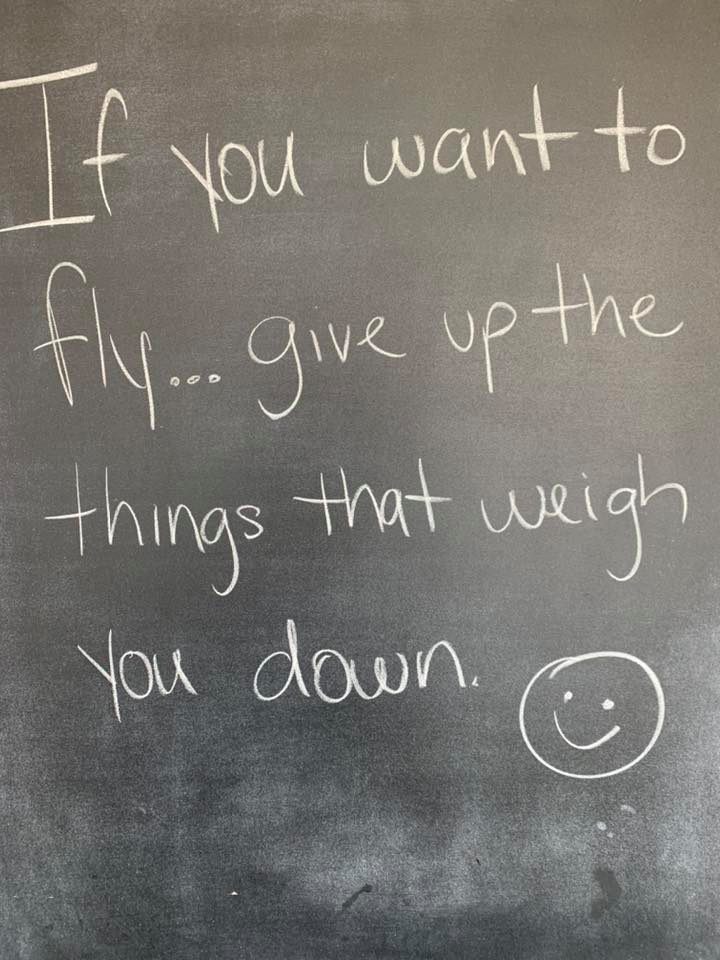 If you want to
fly... give up the
things that weigh
you down.